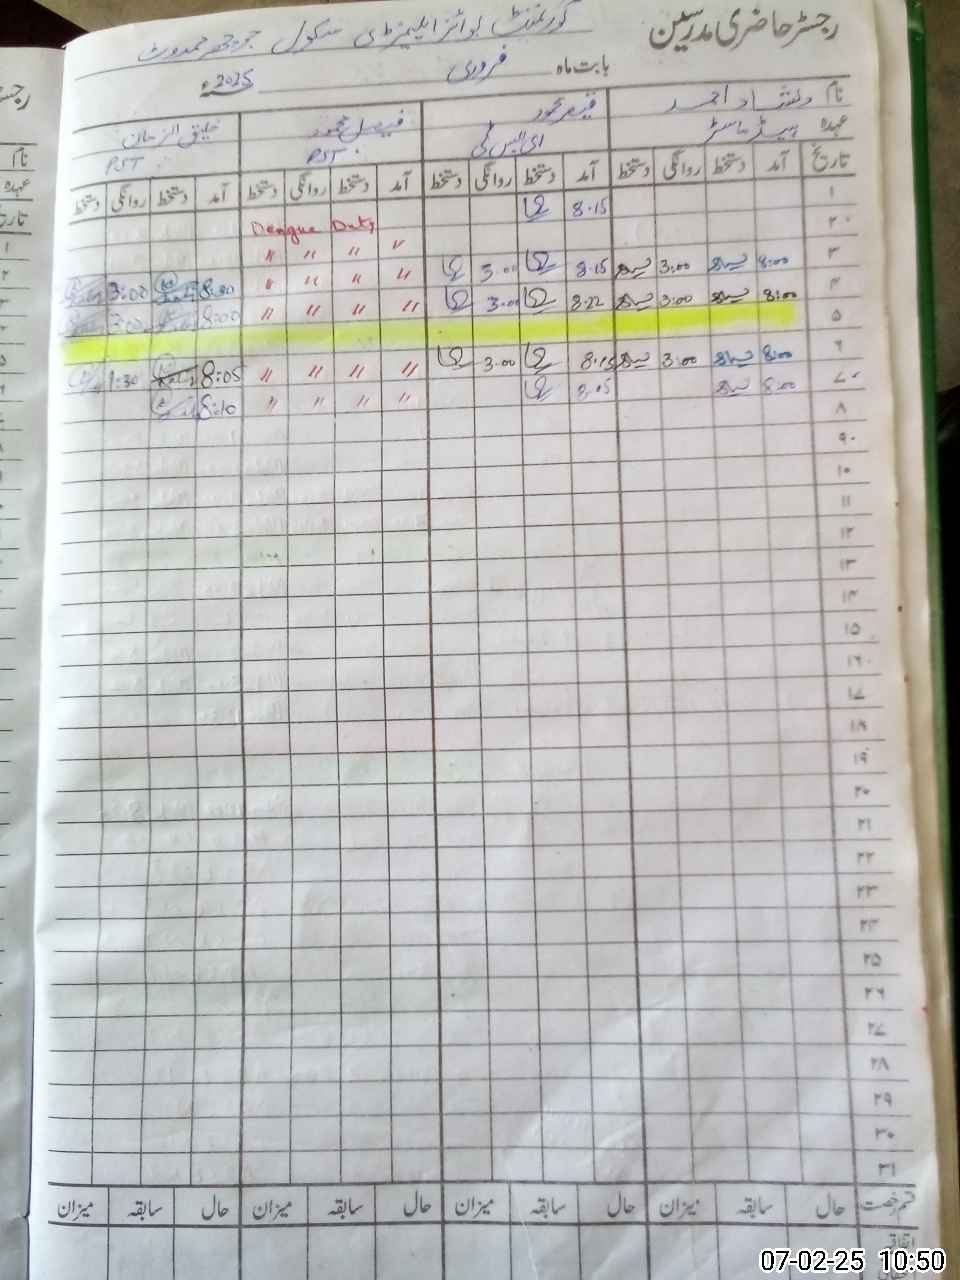 رجسٹر حاضری مدرسین گورنمنٹ بوائز ایلیمنٹری سکول
بابت ماہ فروری 2025ء
نام دلشاد احمد قیصر محمود فیصل محمود خلیق الزمان
عہدہ ہیڈ ماسٹر ای ایس ٹی PST PST
تاریخ آمد دستخط روانگی دستخط آمد دستخط روانگی دستخط آمد دستخط روانگی دستخط آمد دستخط روانگی دستخط
۱ 8.15 Dengue Duty
۲ " " " "
۳ 8:00 3:00 8.15 3.00 " " " " 8:00 3:00
۴ 8:00 3:00 8.22 3.00 " " " " 8:00 3:00
۵
۶ 8:00 3:00 8.15 3.00 " " " " 8:05 1:30
۷ 8:00 8.05 " " " " 8:10
۸
۹
۱۰
۱۱
۱۲
۱۳
۱۴
۱۵
۱۶
۱۷
۱۸
۱۹
۲۰
۲۱
۲۲
۲۳
۲۴
۲۵
۲۶
۲۷
۲۸
۲۹
۳۰
۳۱
قسم رخصت حال سابقہ میزان حال سابقہ میزان حال سابقہ میزان حال سابقہ میزان
اتفاقیہ
07-02-25 10:50